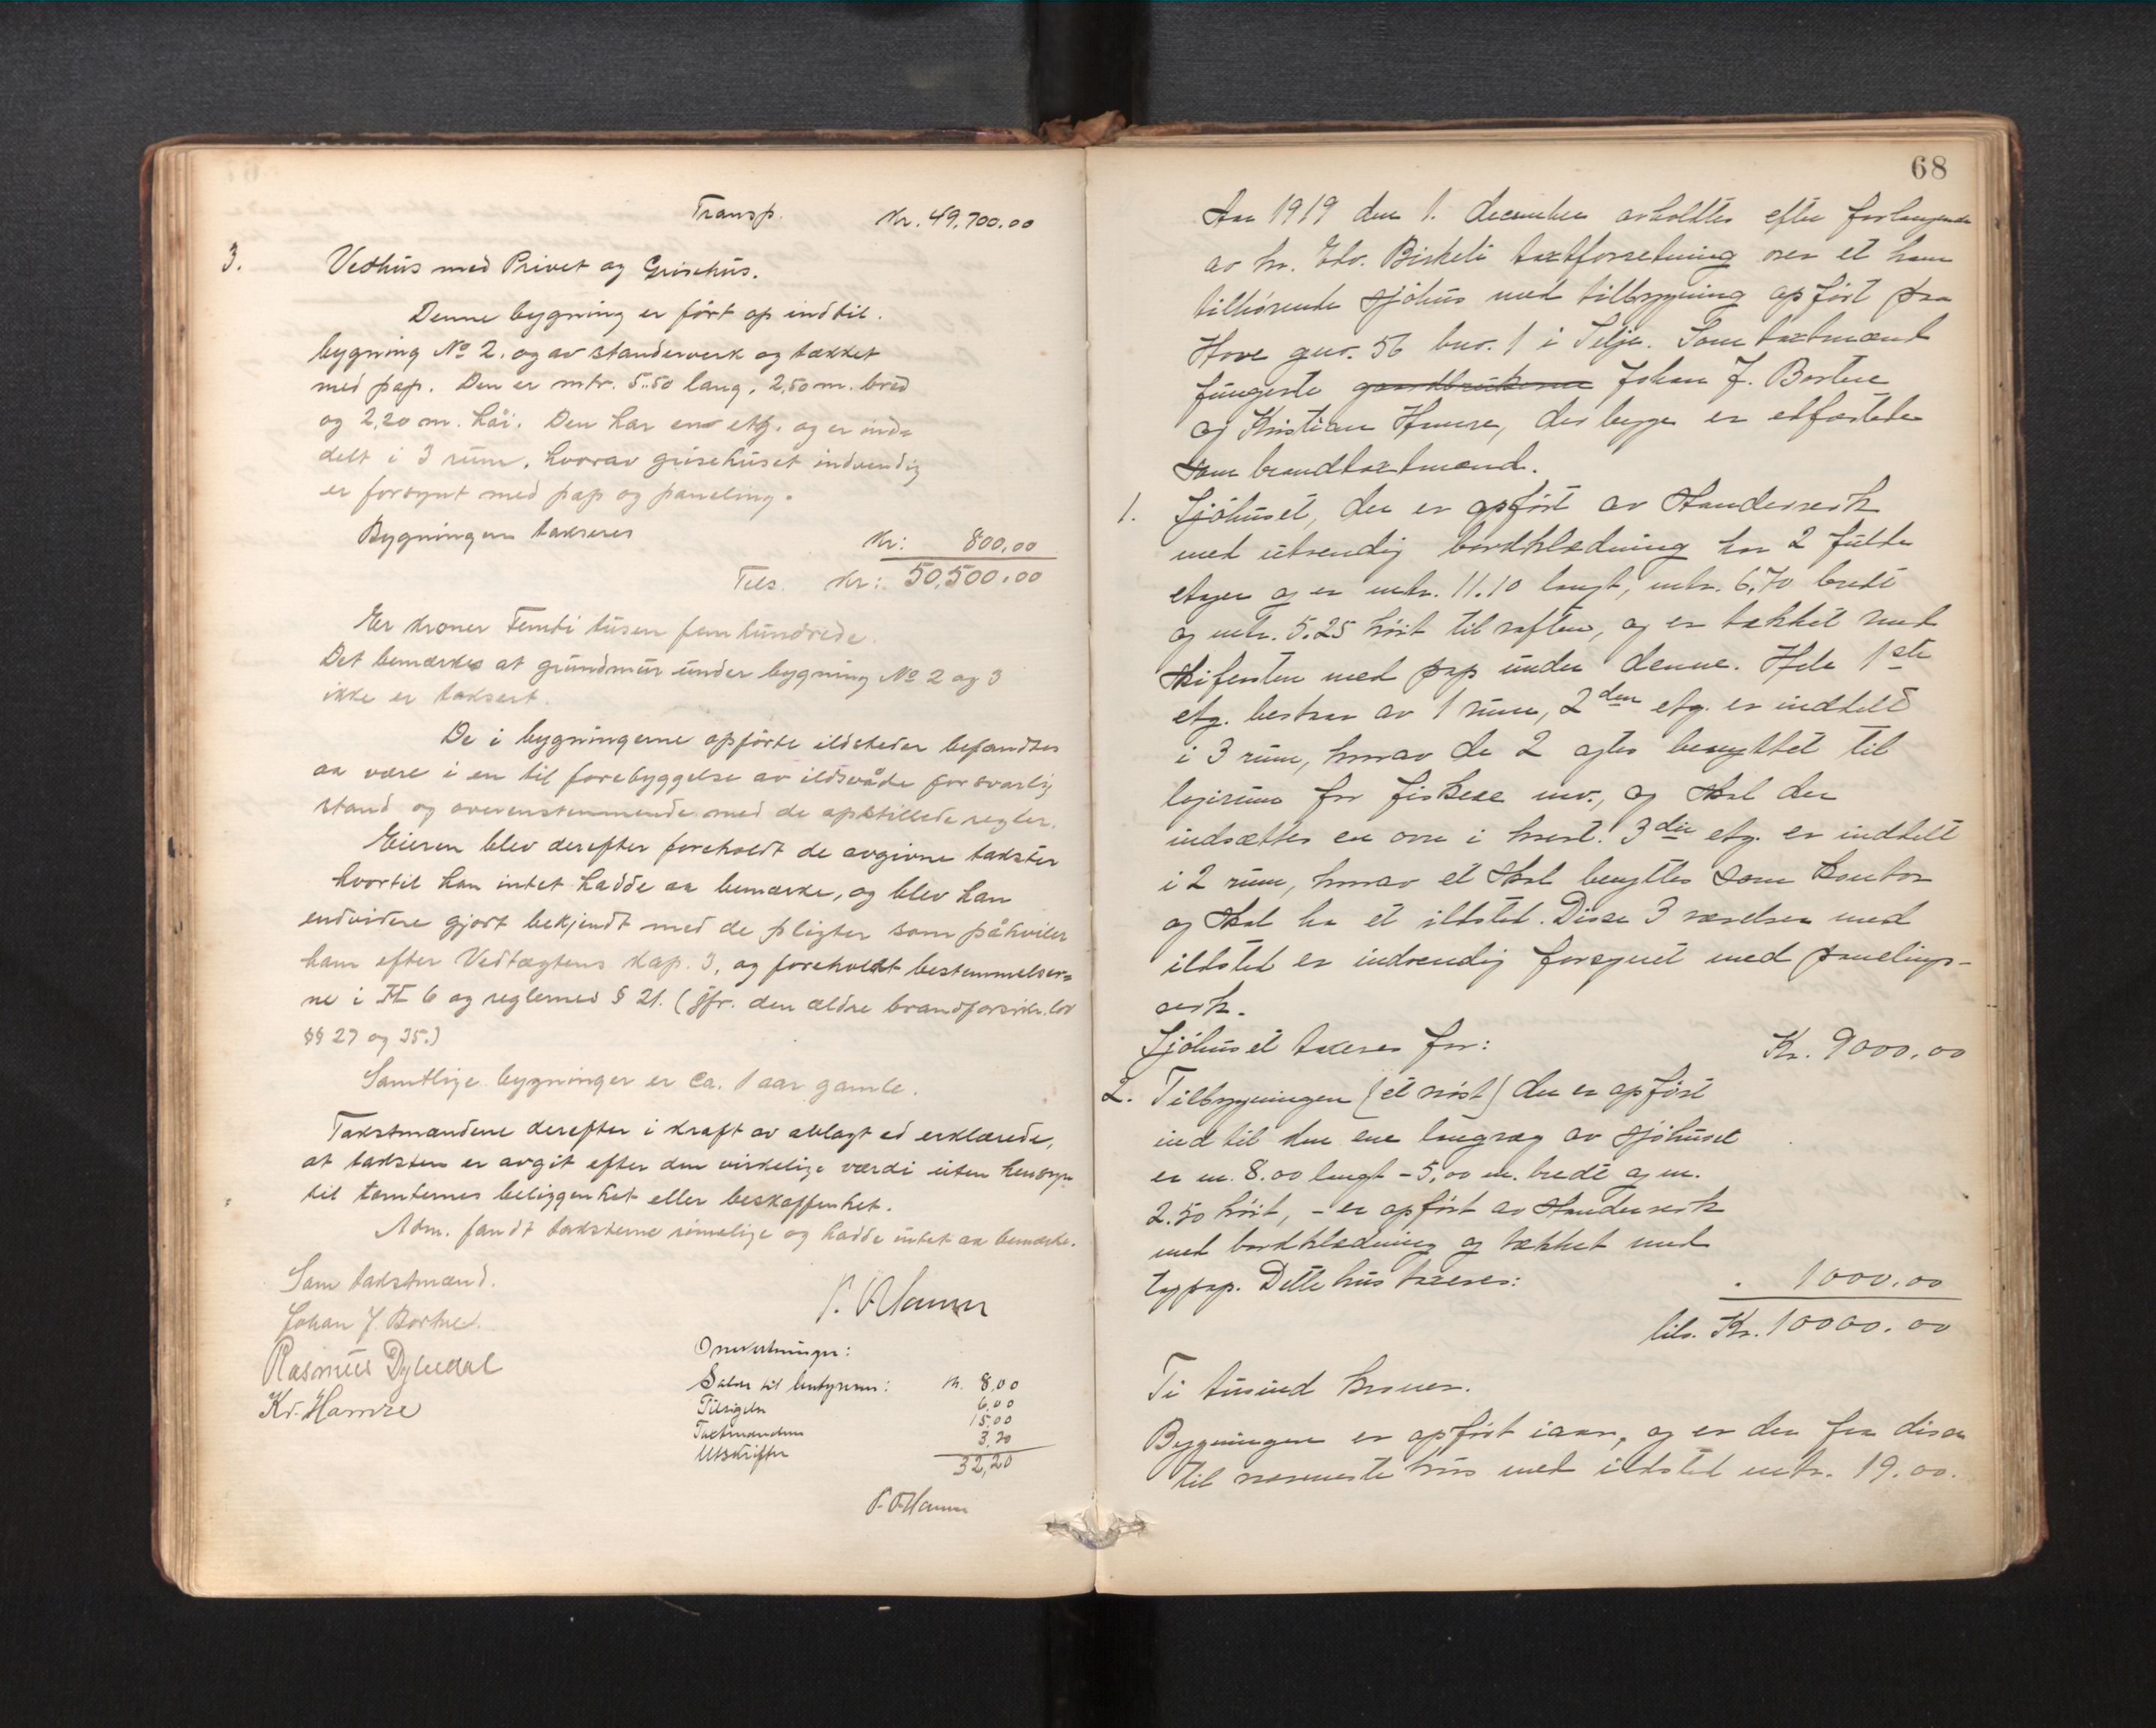 Transp. Kr. 49,700.00
3. Vedhus med Privet og Grisehus.
Denne bygning er ført op indtil
bygning No 2. og av standerverk og tækket
med pap. Den er mtr. 5.50 lang, 2,50 m. bred
og 2,20 m. høi. Den har en etg. og er ind=
delt i 3 rum, hvorav grisehuset indvendig
er forsynt med pap og paneling.
Bygningen takseres Kr: 800,00
Tils. Kr: 50,500.00
Er kroner Femti tusen fem hundrede.
Det bemærkes at grundmur under bygning No 2 og 3
ikke er taksert.
De i bygningerne opførte ildsteder befandtes
aa være i en til forebyggelse av ildsvåde forsvarlig
stand og overenstemmende med de opstillede regler.
Eieren blev derefter foreholdt de avgivne takster
hvortil han intet hadde aa bemærke, og blev han
endvidere gjort bekjendt med de pligter som påhviler
ham efter Vedtægtens kap. 3, og foreholdt bestemmelser=
ne i 6 og reglernes § 21. (jfr. den ældre brandforsikr. lov
§§ 27 og 35.)
Samtlige bygninger er ca. 1 aar gamle.
Takstmændene derefter i kraft av avlagt ed erklærede,
at taksten er avgit efter den virkelige værdi uten hensyn
til tomternes beliggenhet eller beskaffenhet.
Adm. fandt taksterne rimelige og hadde intet aa bemærke.
Som takstmænd.
Johan J. Bortne.
Rasmus
Kr. Hamre
Omkostninger:
Salær til bestyreren: kr. 8,00
Tilsigelse 6,00
Taxtmændene 15,00
Utskrifter 3,20
32,20
68
Aar 1919 den 1. december avholdtes efter forlangende
av hr. Edv. Birkeli taxtforretning over et ham
tilhørende sjøhus med tilbygning opført paa
Hove gnr. 56 bnr. 1 i Selje. Som taxtmænd
fungerte gaardbrukerne Johan J. Bortne
og Kristian Hamre, der begge er edfæstede
som brandtaxtmænd.
1. Sjøhuset, der er opført av standerverk
med utvendig bordklædning har 2 fulde
etager og er mtr. 11.10 langt, mtr. 6,70 bredt
og mtr. 5.25 høit til raften, og er tækket med
skifersten med pap under denne. Hele 1ste
etg. bestaar av 1 rum, 2den etg. er inddelt
i 3 rum, hvorav de 2 agtes benyttet til
logirum for fiskere mv., og skal der
indsættes en ovn i hvert. 3die etg. er inddelt
i 2 rum, hvorav et skal benyttes som kontor
og skal ha et ildsted. Disse 3 værelser med
ildsted er indvendig forsynet med panelings-
verk.
Sjøhuset taxeres for: Kr. 9000,00
2. Tilbygningen (et nøst) der er opført
ind til den ene langvæg av sjøhuset
er m. 8.00 langt - 5,00 m. bredt og m.
2.50 høit, - er opført av standerverk
med bordklædning og tækket med
tagpap. Dette hus taxeres: " 1000.00
tils. Kr. 10000.00
Ti tusind kroner.
Bygningen er opført iaar, og er der fra disse
til nærmeste hus med ildsted mtr. 19.00.